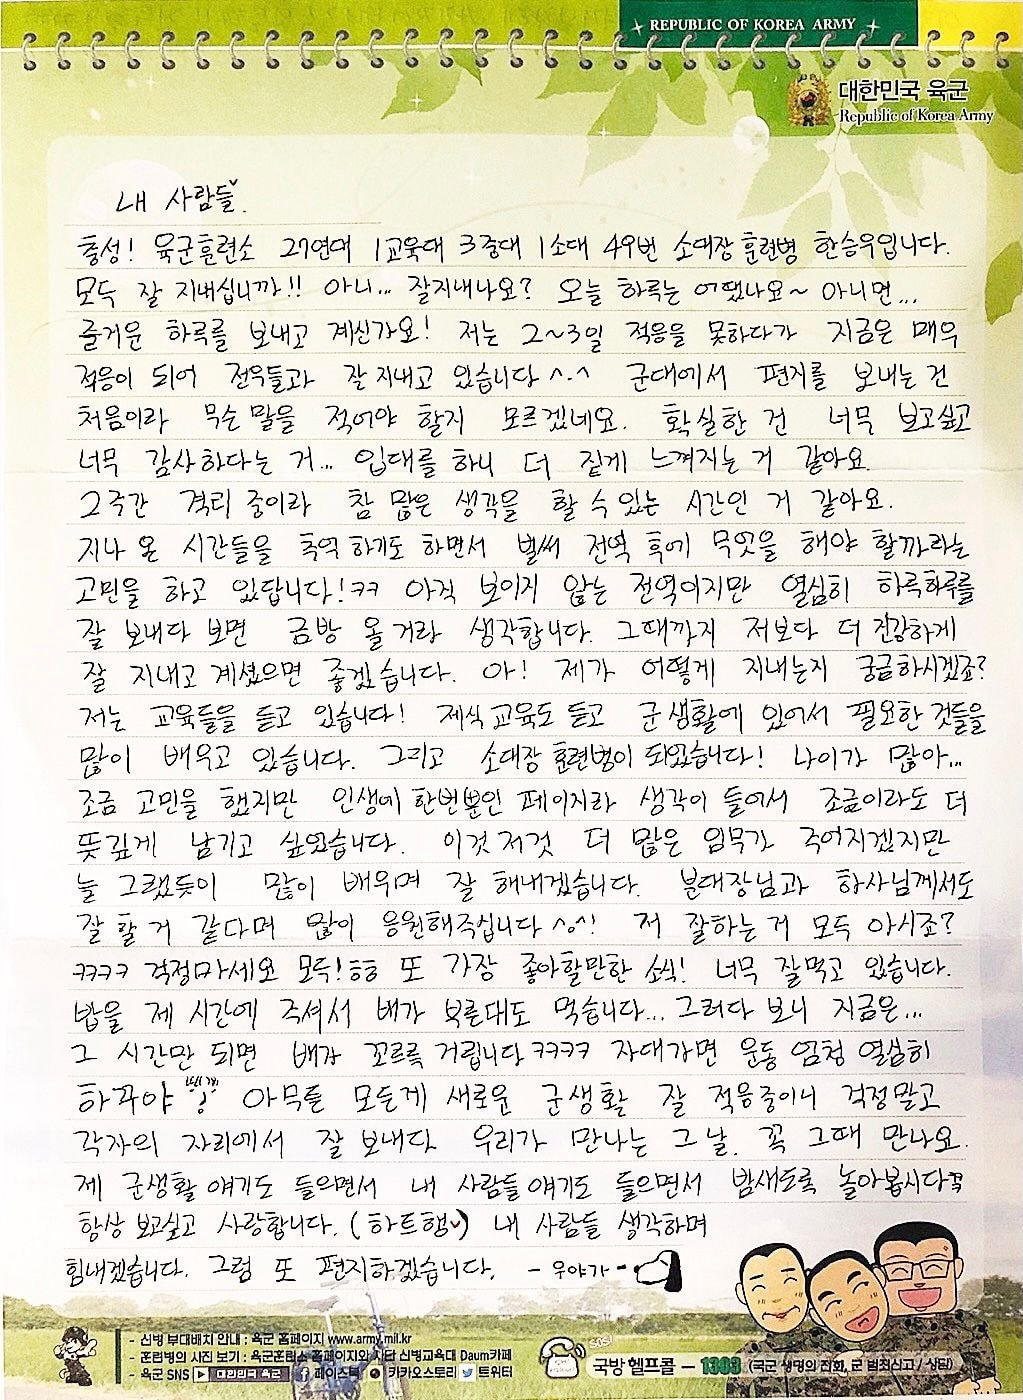 REPUBLIC OF KOREA ARMY
대한민국 육군
Republic of Korea Army
내 사람들.
충성! 육군훈련소 27연대 1교육대 3중대 1소대 49번 소대장 훈련병 한승우입니다.
모두 잘 지내십니까!! 아니... 잘지내나요? 오늘 하루는 어땠나요~ 아니면...
즐거운 하루를 보내고 계신가요! 저는 2~3일 적응을 못하다가 지금은 매우
적응이 되어 전우들과 잘 지내고 있습니다 ^.^ 군대에서 편지를 보내는 건
처음이라 무슨 말을 적어야 할지 모르겠네요. 확실한 건 너무 보고싶고
너무 감사하다는 거... 입대를 하니 더 짙게 느껴지는 거 같아요.
2주간 격리 중이라 참 많은 생각을 할 수 있는 시간인 거 같아요.
지나 온 시간들을 추억하기도 하면서 벌써 전역 후에 무엇을 해야 할까라는
고민을 하고 있답니다!ㅋㅋ 아직 보이지 않는 전역이지만 열심히 하루하루를
잘 보내다 보면 금방 올거라 생각합니다. 그때까지 저보다 더 건강하게
잘 지내고 계셨으면 좋겠습니다. 아! 제가 어떻게 지내는지 궁금하시겠죠?
저는 교육들을 듣고 있습니다! 제식교육도 듣고 군생활에 있어서 필요한 것들을
많이 배우고 있습니다. 그리고 소대장 훈련병이 되었습니다! 나이가 많아...
조금 고민을 했지만 인생에 한번뿐인 페이지라 생각이 들어서 조금이라도 더
뜻깊게 남기고 싶었습니다. 이것저것 더 많은 임무가 주어지겠지만
늘 그랬듯이 많이 배우며 잘 해내겠습니다. 분대장님과 하사님께서도
잘 할 거 같다며 많이 응원해주십니다 ^o^! 저 잘하는 거 모두 아시죠?
ㅋㅋㅋㅋ 걱정마세요 모두!ㅎㅎ 또 가장 좋아할만한 소식! 너무 잘먹고 있습니다.
밥을 제 시간에 주셔서 배가 부를대도 먹습니다... 그러다 보니 지금은...
그 시간만 되면 배가 꼬르륵 거립니다 ㅋㅋㅋㅋ 자대가면 운동 엄청 열심히
하꾸야! 아무튼 모든게 새로운 군생활 잘 적응중이니 걱정말고
각자의 자리에서 잘 보내다 우리가 만나는 그날. 꼭 그때 만나요.
제 군생활 얘기도 들으면서 내 사람들 얘기도 들으면서 밤새도록 놀아봅시다꼭
항상 보고싶고 사랑합니다. (하트행♥) 내 사람들 생각하며
힘내겠습니다. 그럼 또 편지하겠습니다. - 우야가 -
- 신병 부대배치 안내 : 육군 홈페이지 www.army.mil.kr
- 훈련병의 사진 보기 : 육군훈련소 홈페이지와 사단 신병교육대 Daum카페
- 육군 SNS 대한민국 육군 페이스북 카카오스토리 트위터
SOS! 국방헬프콜 - 1303 (국군 생명의 전화, 군 범죄신고 / 상담)